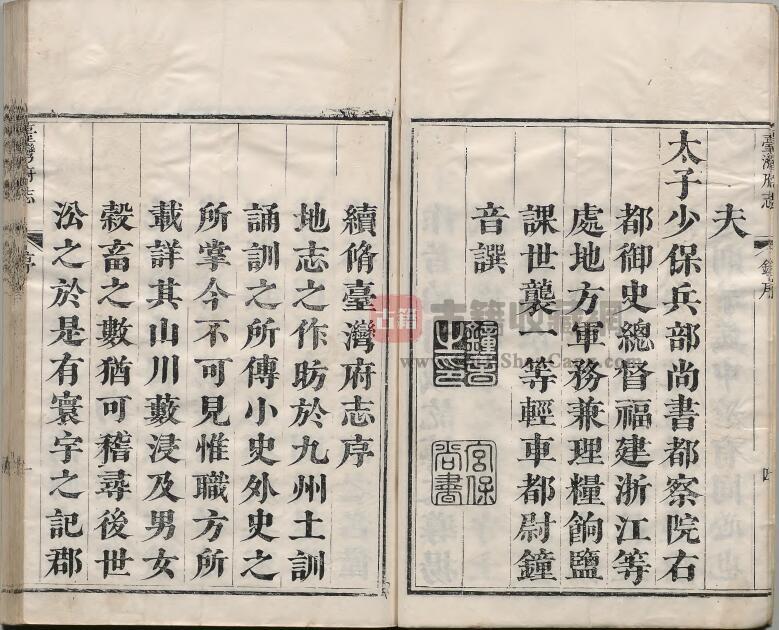 臺灣府志
鐘序
四
夫
太子少保兵部尚書都察院右
都御史總督福建浙江等
處地方軍務兼理糧餉鹽
課世襲一等輕車都尉鐘
音譔
鐘音之印
宮保尚書
續脩臺灣府志序
地志之作昉於九州土訓
誦訓之所傳小史外史之
所掌今不可見惟職方所
載詳其山川藪浸及男女
穀畜之數猶可稽尋後世
㳂之於是有寰宇之記郡
臺灣府志
序
一
古籍
古籍收藏網